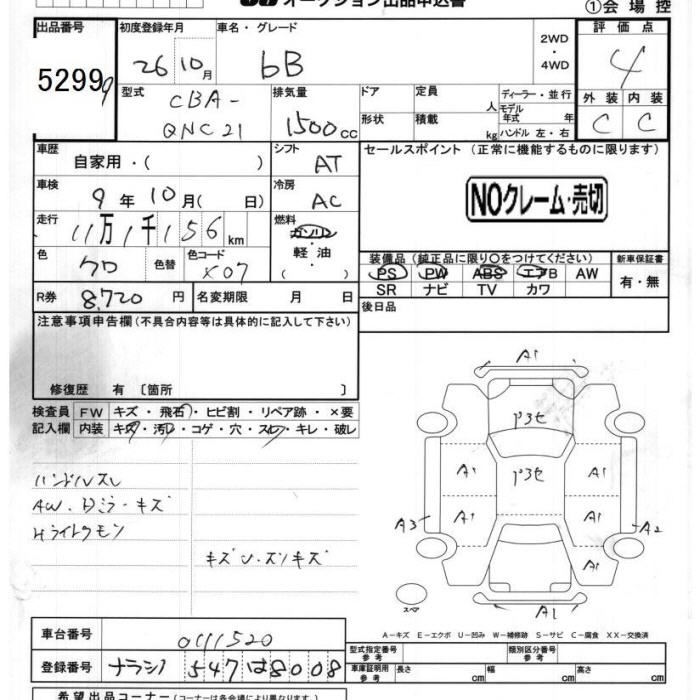 オークション出品申込書
①会場控
出品番号 初度登録年月 車名・グレード 2WD・4WD 評価点
52999 26 10月 bB 4
型式 CBA-QNC21 排気量 1500cc ドア 定員 人 ディーラー・並行
モデル年式 年
形状 積載 kg ハンドル 左・右
外装 内装
C C
車歴 自家用・( ) シフト AT セールスポイント (正常に機能するものに限ります)
車検 9年10月( 日) 冷房 AC
NOクレーム・売切
走行 11万1千156km 燃料 ガソリン・軽油・( )
色 クロ 色替 色コード X07
装備品(純正品に限り○をつけてください) 新車保証書
PS PW ABS エアB AW 有・無
SR ナビ TV カワ
R券 8,720円 名変期限 月 日
後日品
注意事項申告欄(不具合内容等は具体的に記入して下さい)
修復歴 有〔箇所 〕
検査員記入欄 FW キズ・飛石・ヒビ割・リペア跡・×要
内装 キズ・汚れ・コゲ・穴・スレ・キレ・破レ
ハンドルスレ
AW・Dミラーキズ
Hライトクモン
キズU・スリキズ
A1
A1 A1
A3 A1 A1 A2
A1
スペア A1
A-キズ E-エクボ U-凹み W-補修跡 S-サビ C-腐食 XX-交換済
車台番号 0111520
登録番号 ナラシノ 547 は 8008
型式指定番号 参考 類別区分番号 参考
車庫証明用 参考 長さ cm 幅 cm 高さ cm
希望出品コーナー(コーナーは各会場により異なります)